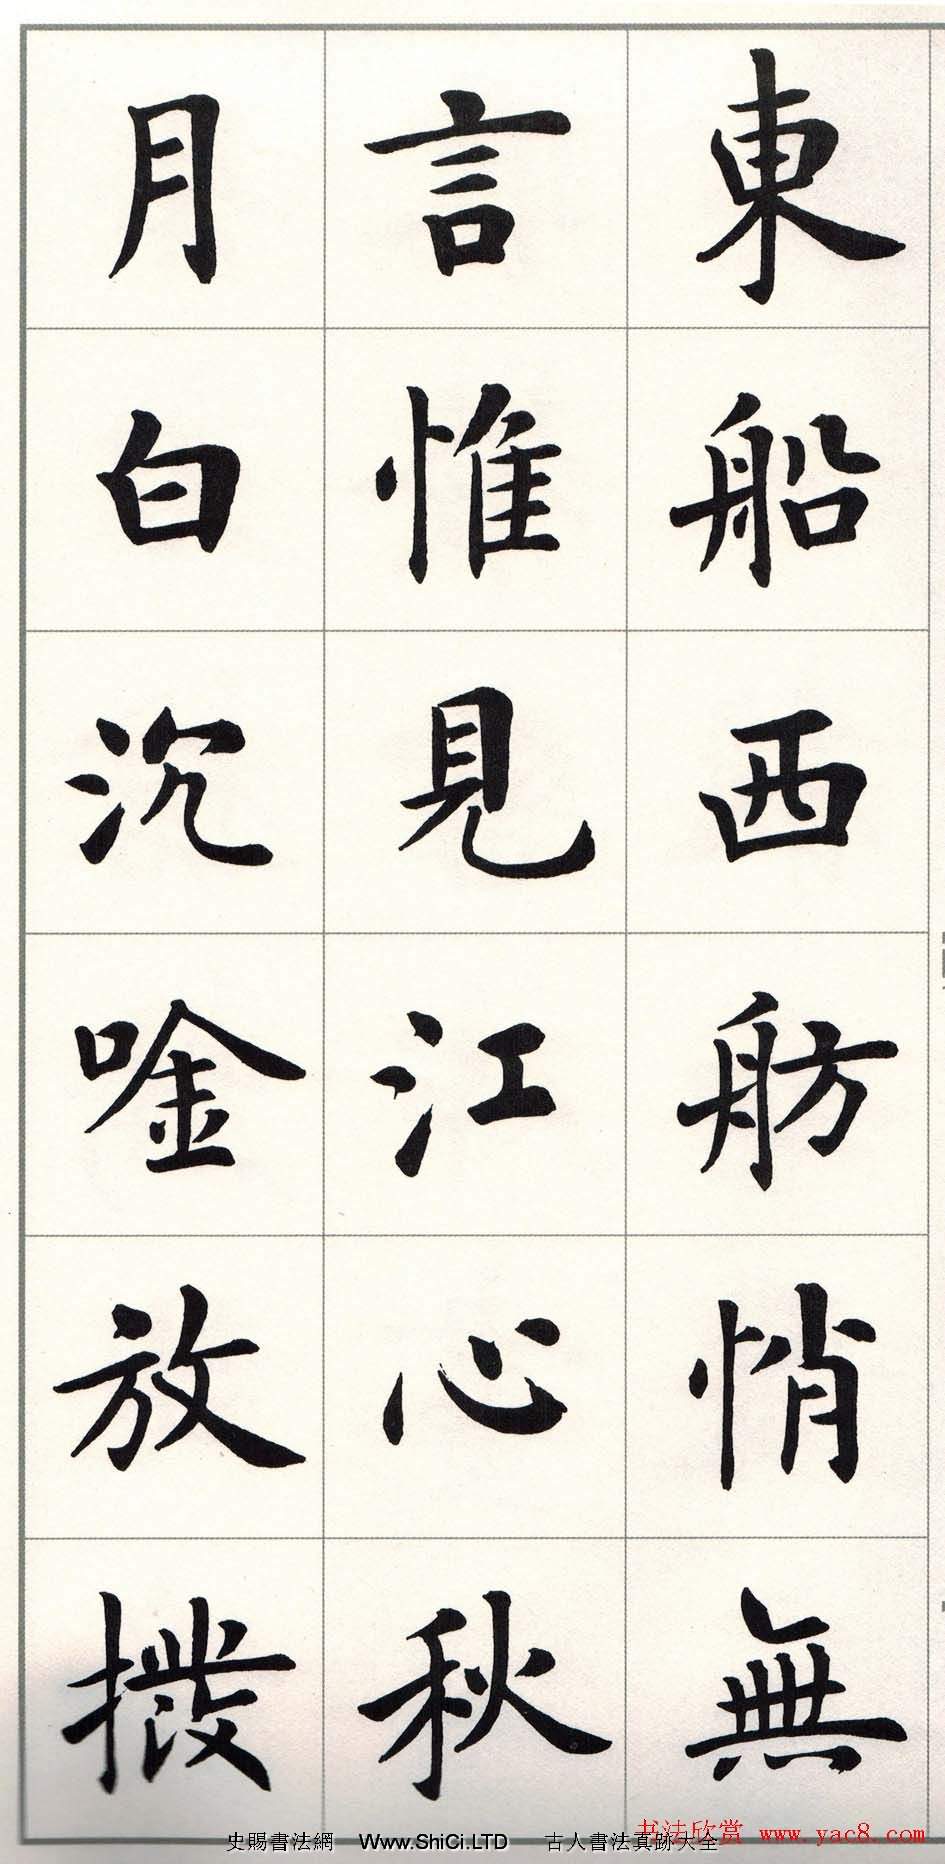 東船西舫悄無
言惟見江心秋
月白沉唫放撥
史賜書法網 Www.ShiCi.LTD 古人書法真跡大全
书法欣赏 www.yac8.com